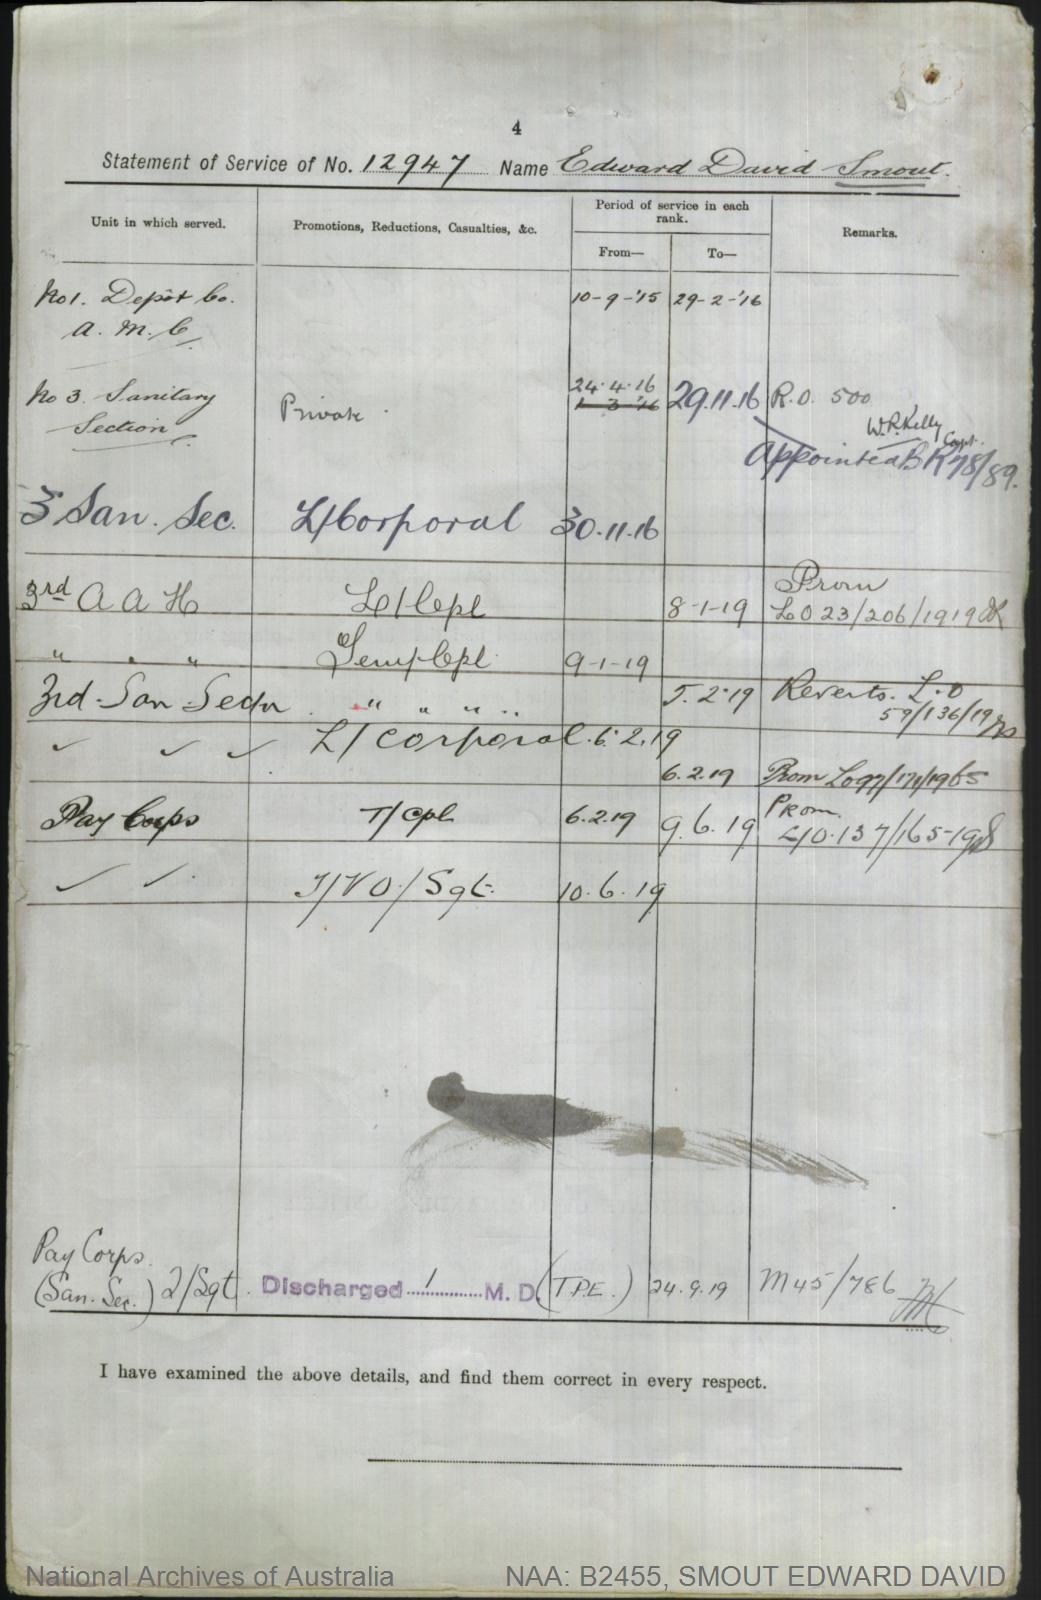 4
Statement of Service of No. 12947 Name Edward David Smout.
Unit in which served. Promotions, Reductions, Casualties, &c. Period of service in each rank. From— To— Remarks.
No 1. Depôt Co. 10-9-'15 29-2-'16
A. M. C.
24.4.16
No 3. Sanitary Private 1-3-'16 29.11.16 R.O. 500
Section W.R. Kelly Capt.
Appointed BR 78/89.
3 San. Sec. L/Corporal 30.11.16
Prom
3rd A A H L/Cpl 8-1-19 LO 23/206/1919
" " " Temp Cpl 9-1-19
3rd San Sectn " " " " 5.2.19 Reverts. L.O
59/136/19
✓ ✓ ✓ L/Corporal 6.2.19
6.2.19 Prom LO 97/171/19
Pay Corps T/Cpl 6.2.19 9.6.19 Prom.
L/O.137/165-19
✓ ✓ T/VO/Sgt. 10.6.19
Pay Corps.
(San. Sec.) 2/Sgt. Discharged 1 M. D. (T.P.E.) 24.9.19 M45/786
I have examined the above details, and find them correct in every respect.
National Archives of Australia NAA: B2455, SMOUT EDWARD DAVID